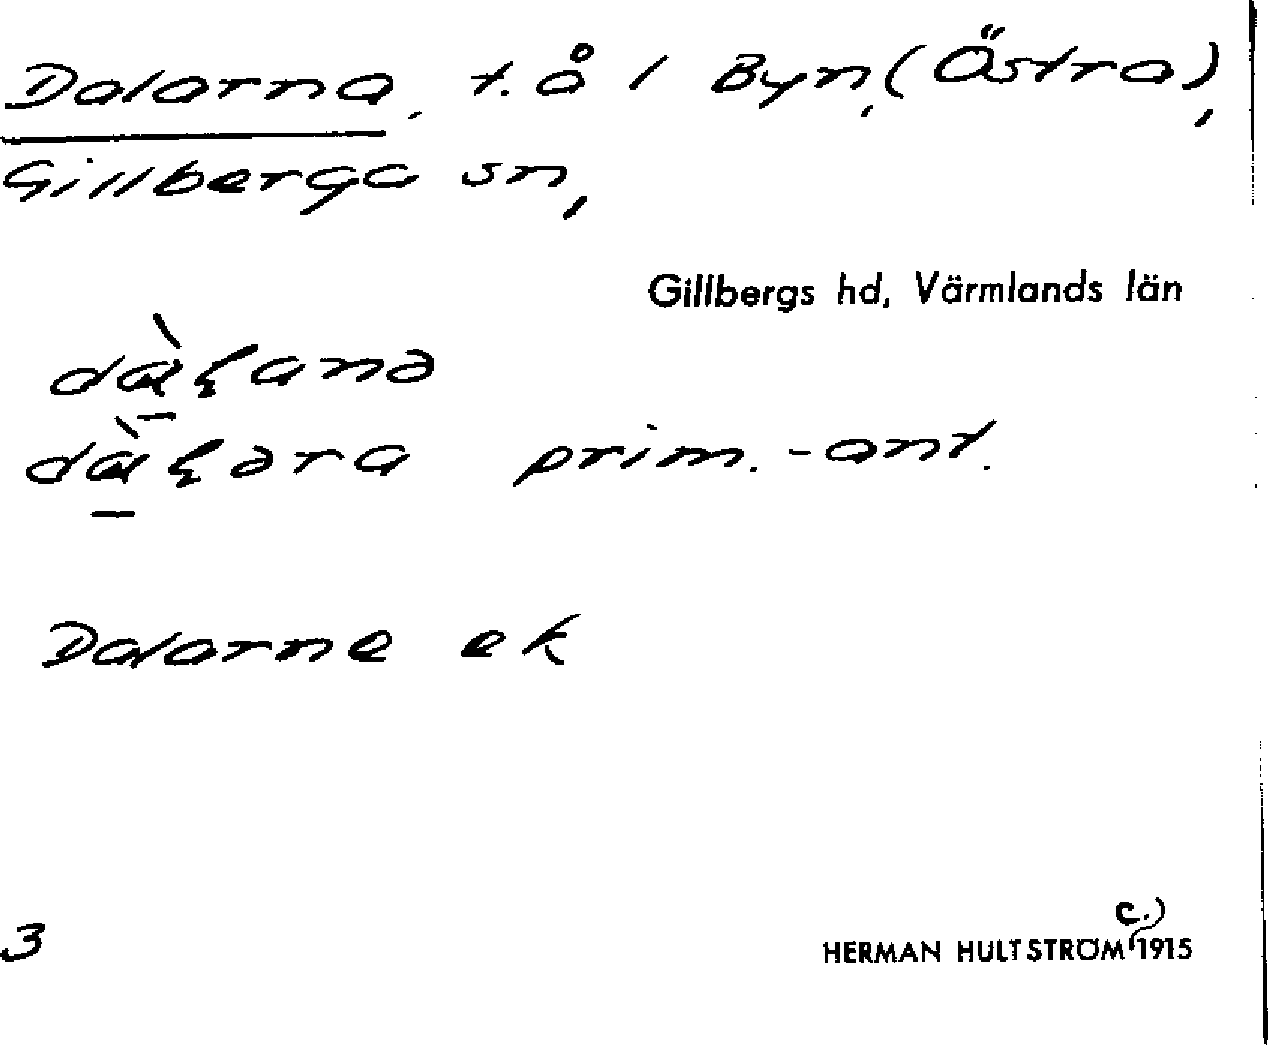 Dalarna, t. å i Byn, (Östra),
Gillberga sn,
Gillbergs hd, Värmlands län
prim.-ant.
Dalarne ek
3
c.)
HERMAN HULTSTRÖM 1915